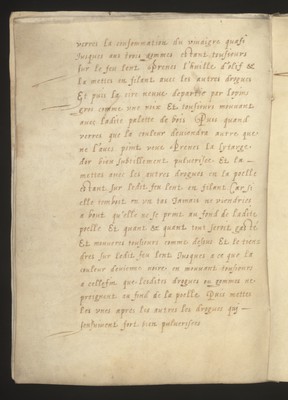 verres la consommation du vinaigre quasi
Jusques aux trois gommes estant tousjours
sur le feu lent prenes l'huille d'olif &
la mettes en filant avec les autres drogues
Et puis la cire neuve departie par loppins
gros comme une noix Et tousjours mouvant
avec ladite palette de bois Puis quand
verres que la couleur deviendra autre que
ne l'avis point veue Prenes la lytarge
d'or bien subtillement pulverisee Et la
mettes avec les autres drogues en la poelle
estant sur ledit feu lent en filant Car si
elle tomboit en un tas Jamais ne viendries
a bout qu'elle ne se preist au fond de ladite
poelle Et quant & quant tout seroit gasté
Et mouveres tousjours comme dessus Et le tiens
dres sur ledit feu lent Jusques a ce que la
couleur devienne noire en mouvant tousjours
a cellefin que lesdites drogues ou gommes ne
preignent au fond de la poelle Puis mettes
les unes apres les autres les drogues qui
sensuivent fort bien pulverisees